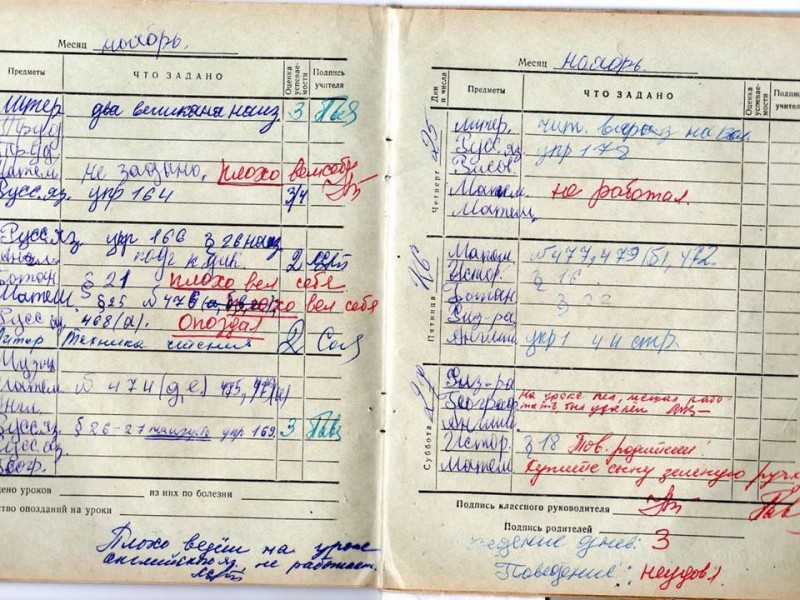 Месяц ноябрь.
Предметы ЧТО ЗАДАНО Оценка успеваемости Подпись учителя
Литер два великана наиз. 3
Труд
Труд
Матем не задано, плохо вел себя
Русс.яз. упр 164 3/4
Русс.яз. упр 166 § 26 наиз
Англ. 2
Ботан § 21 плохо вел себя
Матем. § 25 № 476 плохо вел себя
Русс яз. 468(а). Опоздал
Литер Техника чтения 2
Музык
Матем № 474 (д,е) 475,
Англ.
Русс.яз. § 26-27 упр 169. 3
Русс.яз.
Геогр.
уроков из них по болезни
ство опозданий на уроки
Плохо ведёт на уроке
английского яз, не работает.
Месяц ноябрь
Дни и числа Предметы ЧТО ЗАДАНО Оценка успеваемости Подпись
Четверг 25
Литер. чит.
Русс.яз упр 178
Матем. не работал.
Матем.
Пятница 26
Матем. № 477, 479(б), 472.
Истор. § 16
Ботан § 22
Физ-ра
Англий упр 1 4 и стр.
Суббота 27
Физ-ра
Географ на уроке пел, мешал рабо-
тать был удален
Англий
Истор. § 18 Тов. родители!
Матем Купите сыну зеленую ручк
Подпись классного руководителя
Подпись родителей
ведение днев: 3
Поведение: неудов!